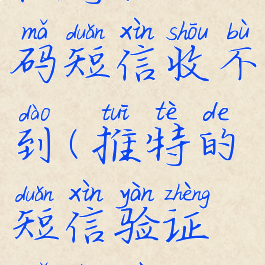 mǎ duǎn xìn shōu bù
码短信收不
dào tuī tè de
到(推特的
duǎn xìn yàn zhèng
短信验证